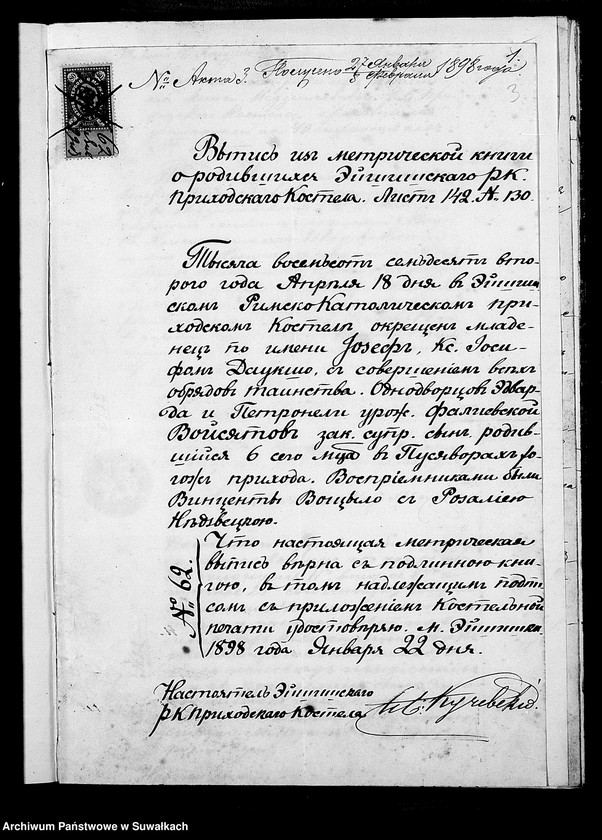 1.
№ Акта 3. Поступило 27 Января / 8 Февраля 1898 года
3
Выпись изъ метрической книги
о родившихся Эйшишскаго РК.
приходскаго Костела. Листъ 142. №. 130.
Тысяча восемьсотъ семьдесятъ вто-
рого года Апрѣля 18 дня въ Эйшиш
скомъ Римско Католическомъ при-
ходскомъ Костелѣ окрещенъ младе-
нецъ по имени Jозефъ, Кс. Іоси-
фомъ Даукшо, съ совершеніемъ всѣхъ
обрядовъ таинства. Однодворцовъ Эдвар-
да и Петронели урож. Фалиевской
Войсятовъ зак. супр. сынъ, родив-
шійся 6 сего м-ца въ Пусяворахъ
гожъ прихода. Воспріемниками были
Винценты Воцыло съ Розаліею
Что настоящая метрическая
выпись вѣрна съ подлинною кни-
гою, въ томъ надлежащимъ подпи
сомъ съ приложеніемъ Костельной
печати удостовѣряю. м. Эйшишки
1898 года Января 22 дня.
№ 62.
Настоятель Эйшишскаго
РК Приходскаго Костела
Archiwum Państwowe w Suwałkach